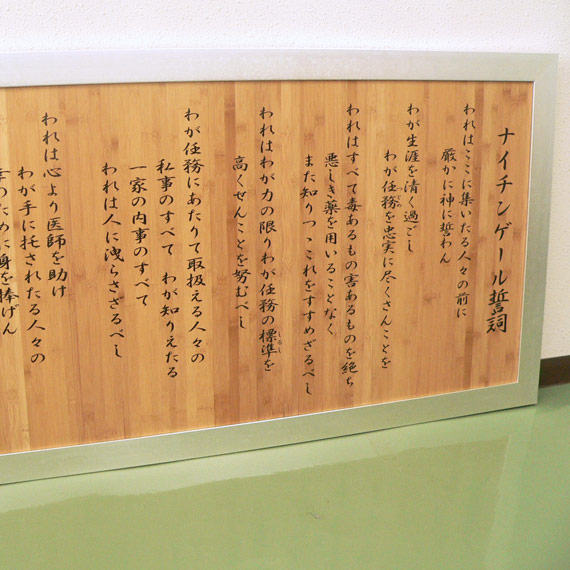 ナイチンゲール誓詞
われはここに集いたる人々の前に
厳かに神に誓わん
わが生涯を清く過ごし
わが任務を忠実に尽くさんことを
われはすべて毒あるもの害あるものを絶ち
悪しき薬を用いることなく
また知りつゝこれをすすめざるべし
われはわが力の限りわが任務の標準を
高くせんことを努むべし
わが任務にあたりて取扱える人々の
私事のすべて わが知りえたる
一家の内事のすべて
われは人に洩らさざるべし
われは心より医師を助け
わが手に托されたる人々の
幸のために身を捧げん